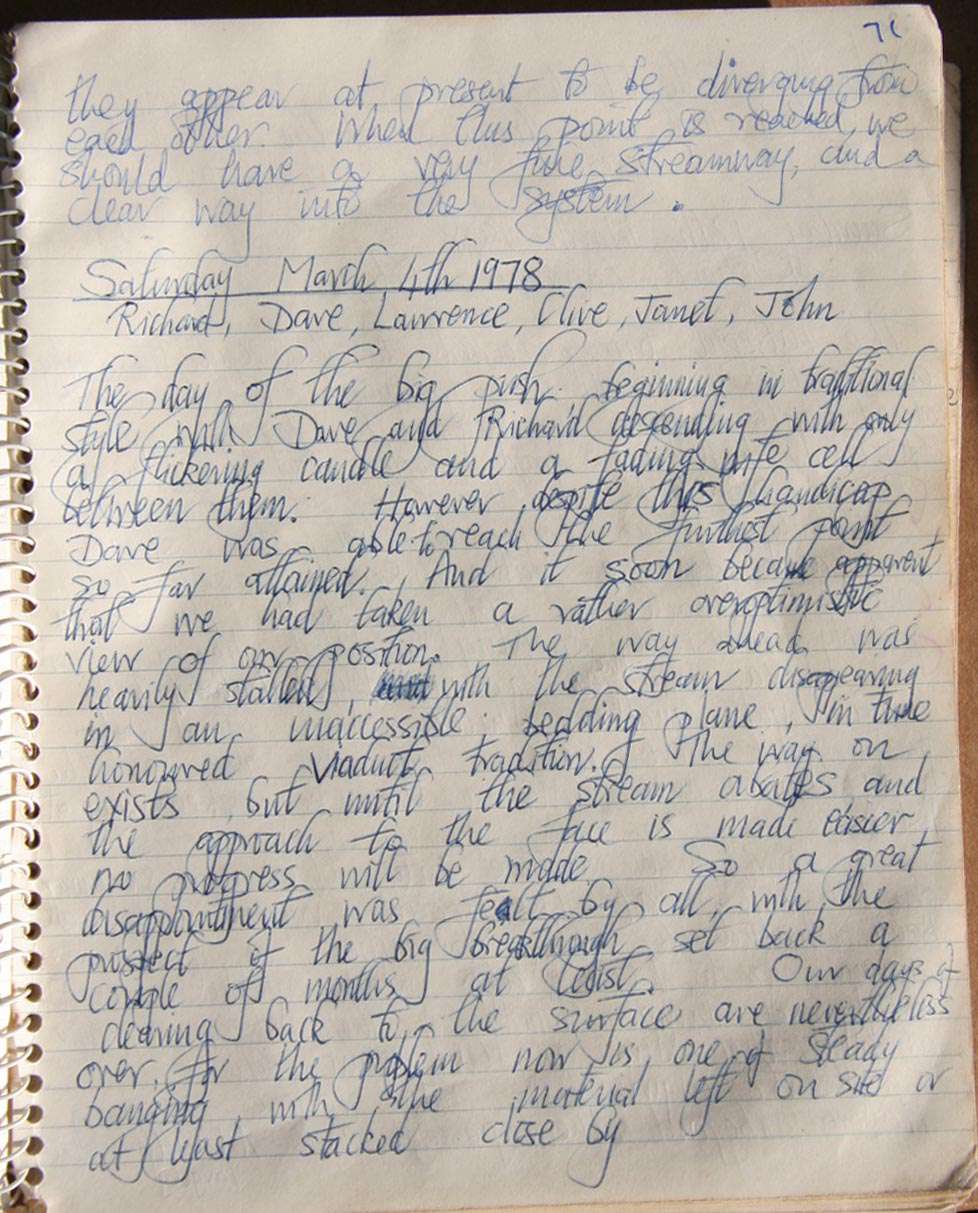 71
they appear at present to be diverging from
each other. When this point is reached, we
should have a very fine streamway, and a
clear way into the system.
Saturday March 4th 1978
Richard, Dave, Lawrence, Clive, Janet, John
The day of the big push. Beginning in traditional
style with Dave and Richard descending with only
a flickering candle and a fading nife cell
between them. However despite this handicap
Dave was able to reach the furthest point
so far attained. And it soon became apparent
that we had taken a rather overoptimistic
view of our position. The way ahead was
heavily stalled, with the stream disappearing
in an inaccessible bedding plane, in true
honoured Viaduct tradition. The way on
exists, but until the stream abates and
the approach to the face is made easier,
no progress will be made. So a great
disappointment was felt by all, with the
prospect of the big breakthrough set back a
couple of months at least. Our days of
clearing back to the surface are nevertheless
over, for the problem now is one of steady
banging, with the material left on site or
at least stacked close by